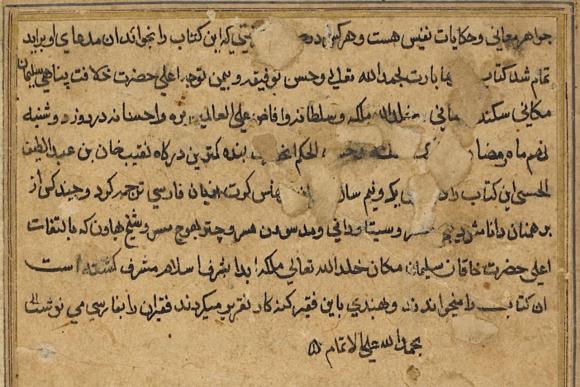 جواهر معانی و حکایات نفیس هست و هرکس در نیتی که این کتاب را بخواند ان مدعای او براید
تمام شد کتاب هابارت بحمد الله تعالی و حسن توفیقه و بیمن توجه اعلی حضرت خلافت پناهی سلیمان
مکانی سکند مانی خلد الله ملکه و سلطانه و افاض علی العالمین بره و احسانه در روز دوشنبه
نهم ماه رمضا سنه بنده کمترین درکاه نقیب خان بن عبد اللطیف
الحسنی این کتاب را در یک و نیم سال کرت بزبان فارسی ترجمه کرد و چند کس از
برهمنان دانا مثل و مدسدن مسر و چتربهوج مسر و شیخ بهاون که بالتفات
اعلی حضرت خاقان سلیمان مکان خلد الله تعالی ملکه ابدا بشرف اسلام مشرف کشته است
ان کتاب را میخواندند و بهندی باین فقیر کنه کار تقریر میکردند فقیر ان را بفارسی می نوشت
بحمد والله علی الاتمام